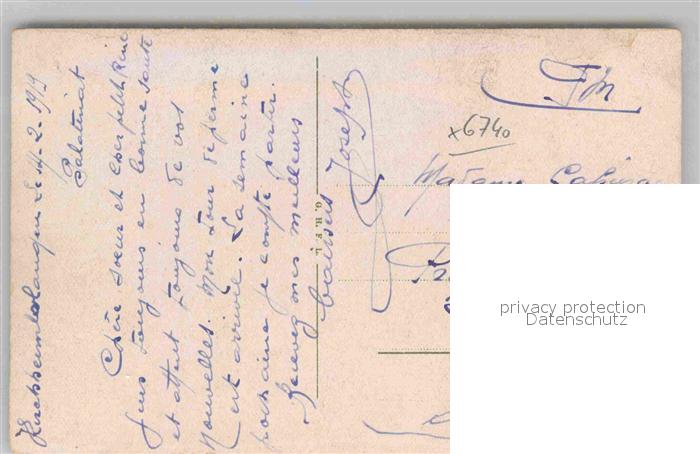 Kirchheimbolanden Le 14-2-1919
Palatinat
Chère soeur et cher petit René
suis toujours en bonne santé
et attent toujours de vos
nouvelles. Mon tour de perme
est arrivé. La semaine
prochaine je compte partir.
Recevez mes meilleurs
baisers Joseph
G. H. F. L.
FM
x6740
Madame
privacy protection
Datenschutz